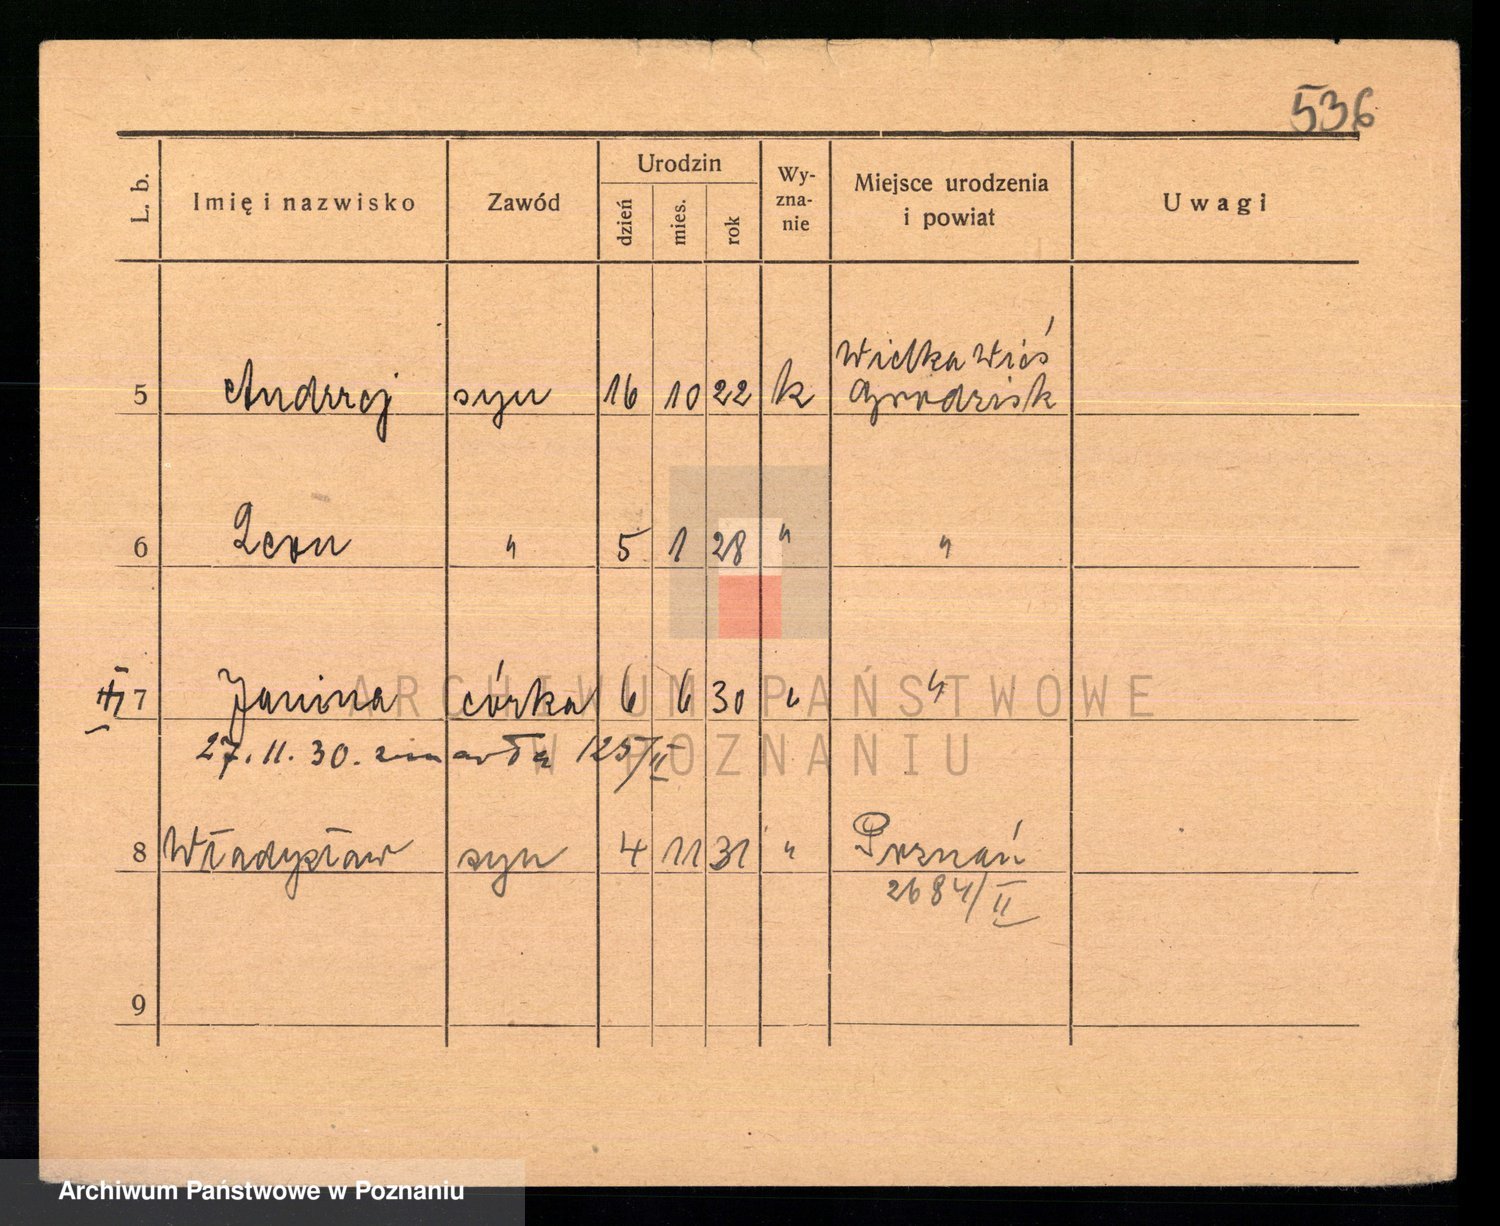 536
L. b.
Imię i nazwisko
Zawód
Urodzin
dzień
mies.
rok
Wy-
zna-
nie
Miejsce urodzenia
i powiat
Uwagi
5 Andrzej syn 16 10 22 k Wielka Wieś
Grodzisk
6 Leon " 5 1 28 " "
7 Janina córka 6 6 30 " "
27. 11. 30. zmarła 125/II
8 Władysław syn 4 11 31 " Poznań
2684/II
9
ARCHIWUM PAŃSTWOWE
W POZNANIU
Archiwum Państwowe w Poznaniu